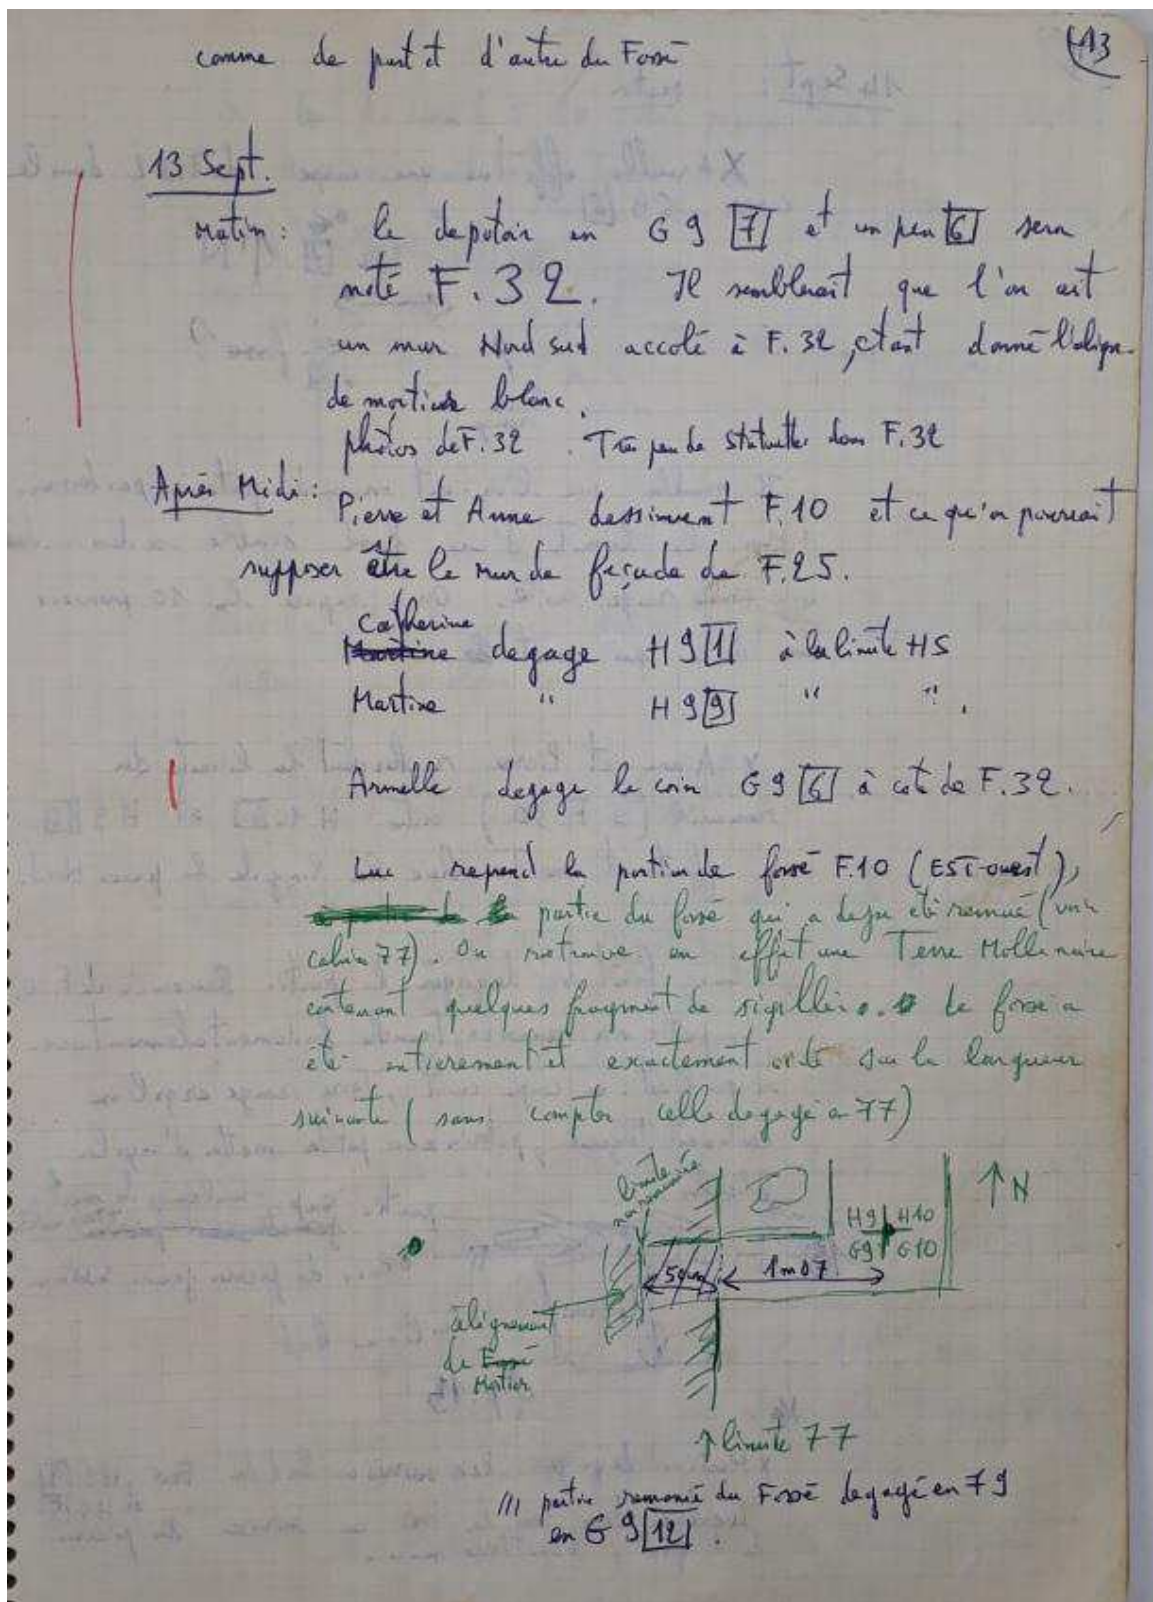 13
comme de part et d'autre du Fossé
13 Sept.
Matin : le depotoir en G 9 [7] et un peu [6] sera
noté F. 32. Il semblerait que l'on ait
un mur Nord sud accolé à F. 32, étant donné l'align.
de mortier blanc.
photos de F. 32. Très peu de statuettes dans F. 32
Après Midi : Pierre et Anne dessinent F. 10 et ce qu'on pourrait
supposer être le mur de façade de F. 25.
Catherine
Martine degage H 9 [1] à la limite H5
Martine " H 9 [9] " ".
Armelle degage le coin G 9 [6] à coté de F. 32.
Luc reprend la portion de fossé F. 10 (EST-ouest),
partie du fossé qui a deja été remué (voir
cahier 77). On retrouve en effet une Terre Molle noire
contenant quelques fragment de sigillée. Le fossé a
été entierement et exactement vidé sur la longueur
suivante (sans compter celle degagé en 77)
limite
↑ N
H9 H10
G9 G10
50cm
1m07
alignement
de Fossé
Mortier
↑ limite 77
/// partie remanié du Fossé degagé en 79
en G 9 [12].